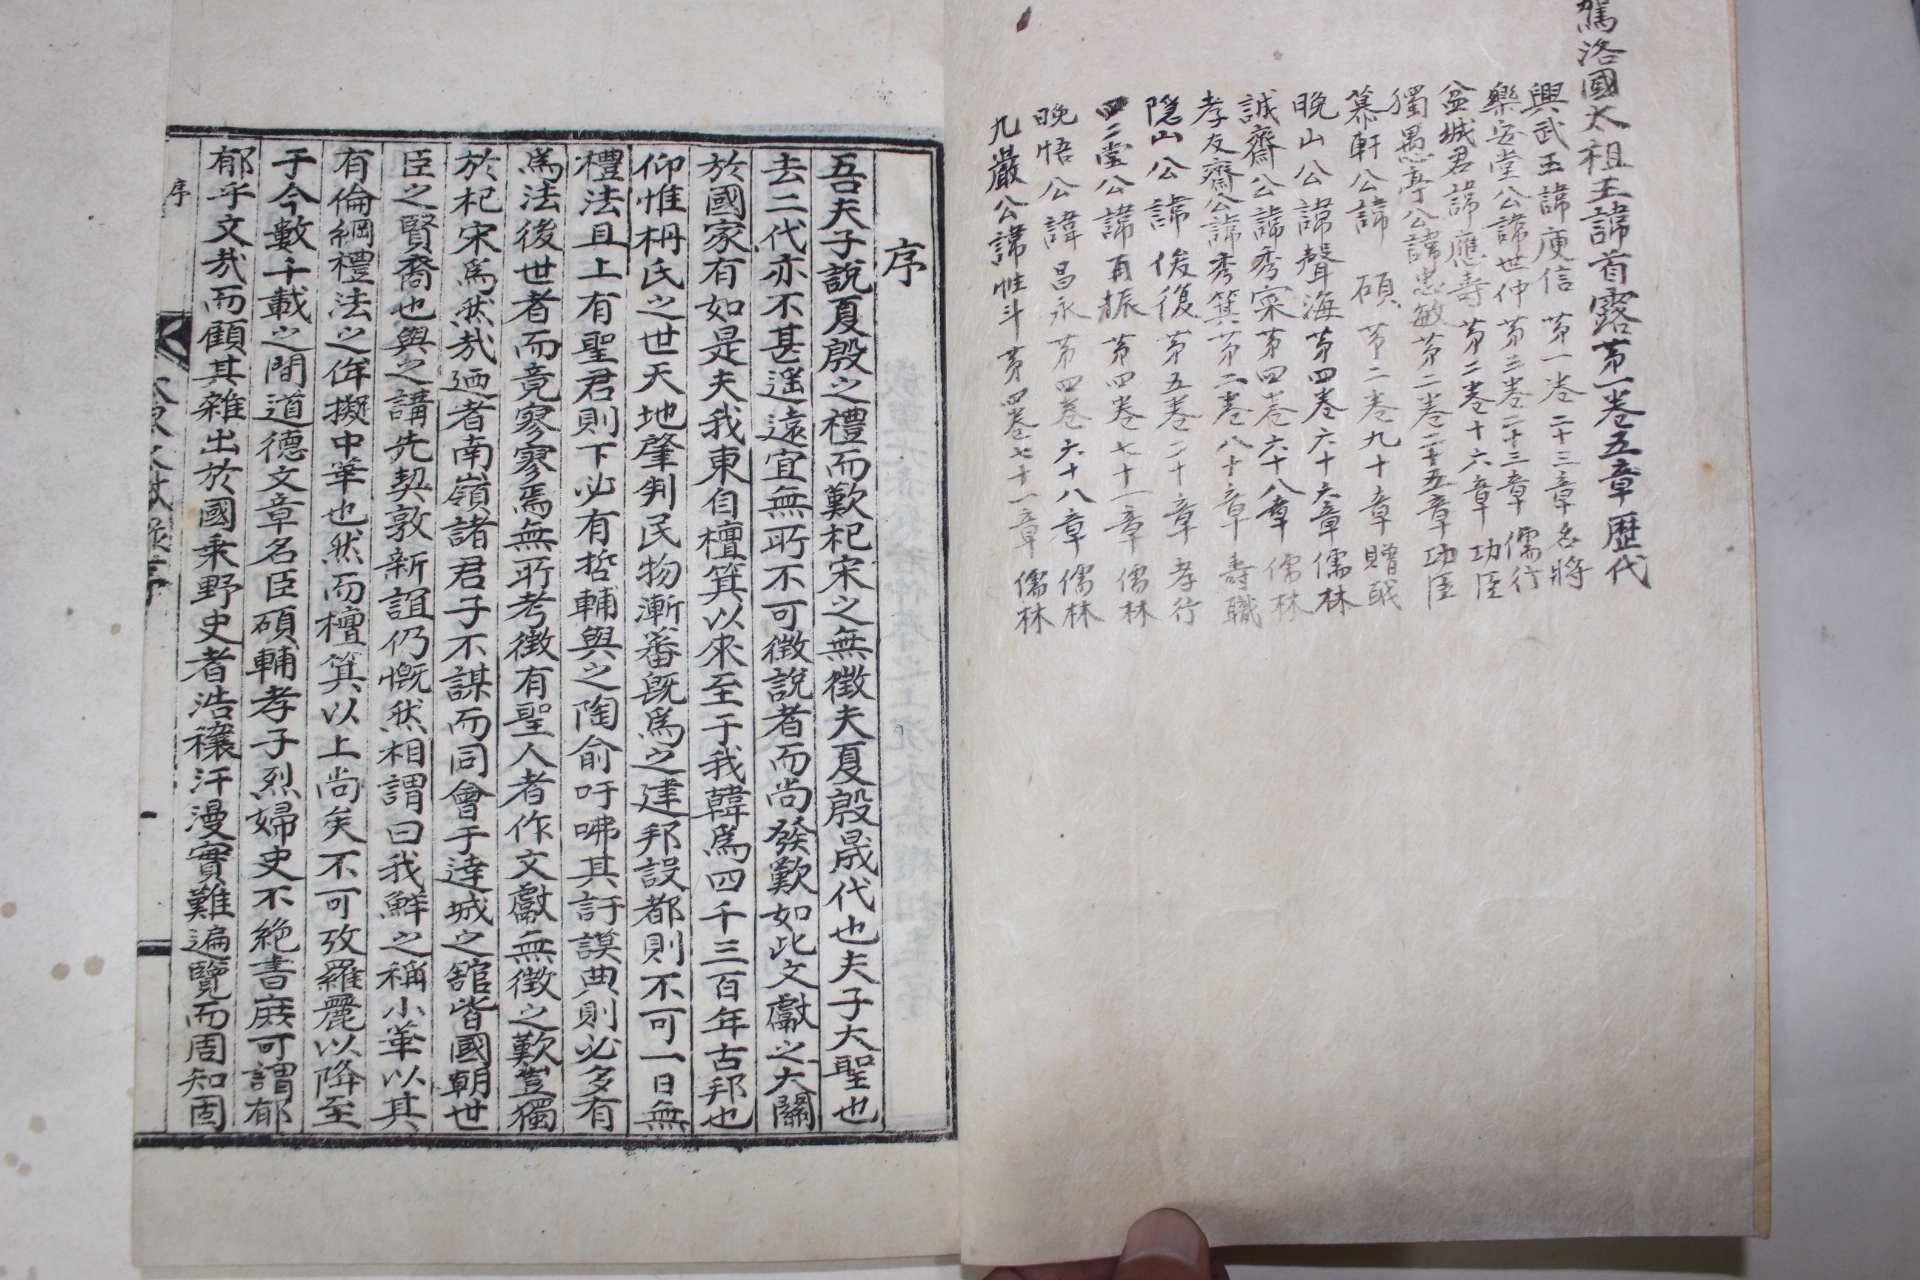 駕洛國太祖王諱首露苐一卷五章歷代
興武王諱庾信苐一卷二十三章名將
樂安堂公諱世仲苐三卷二十三章儒行
盆城君諱應壽苐二卷十六章功臣
獨愚亭公諱忠敏苐二卷二十五章功臣
慕軒公諱碩苐二卷九十章贈戠
晚山公諱聲海苐四卷六十六章儒林
誠齋公諱秀寀苐四卷六十八章儒林
孝友齋公諱秀箕苐二卷八十章壽職
隐山公諱俊復苐五卷二十章孝行
四二堂公諱再振苐四卷七十一章儒林
晚悟公諱昌永苐四卷六十八章儒林
九巖公諱性斗苐四卷七十一章儒林
序
吾夫子說夏殷之禮而歎杞宋之無徵夫夏殷晟代也夫子大聖也
去二代亦不甚遥遠宜無所不可徵說者而尚發歎如此文獻之大關
於國家有如是夫我東自檀箕以來至于我韓爲四千三百年古邦也
仰惟枏氏之世天地肇判民物漸蕃旣爲之建邦設都則不可一日無
禮法且上有聖君則下必有哲輔與之陶俞吁咈其訏謨典則必多有
爲法後世者而竟寥寥焉無所考徵有聖人者作文獻無徵之歎豈獨
於杞宋爲然㢤廼者南嶺諸君子不謀而同會于達城之舘皆國朝世
臣之賢裔也與之講先契敦新誼仍慨然相謂曰我鮮之稱小華以其
有倫綱禮法之侔擬中華也然而檀箕以上尚矣不可攷羅麗以降至
于今數千載之間道德文章名臣碩輔孝子烈婦史不絶書庶可謂郁
郁乎文㢤而顧其雜出於國乘野史者浩穰汗漫實難遍覽而周知固
序